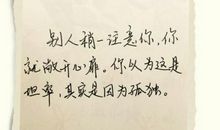 别人稍一注意你,你
就敞开心扉。你以为这是
坦率,其实是因为孤独。